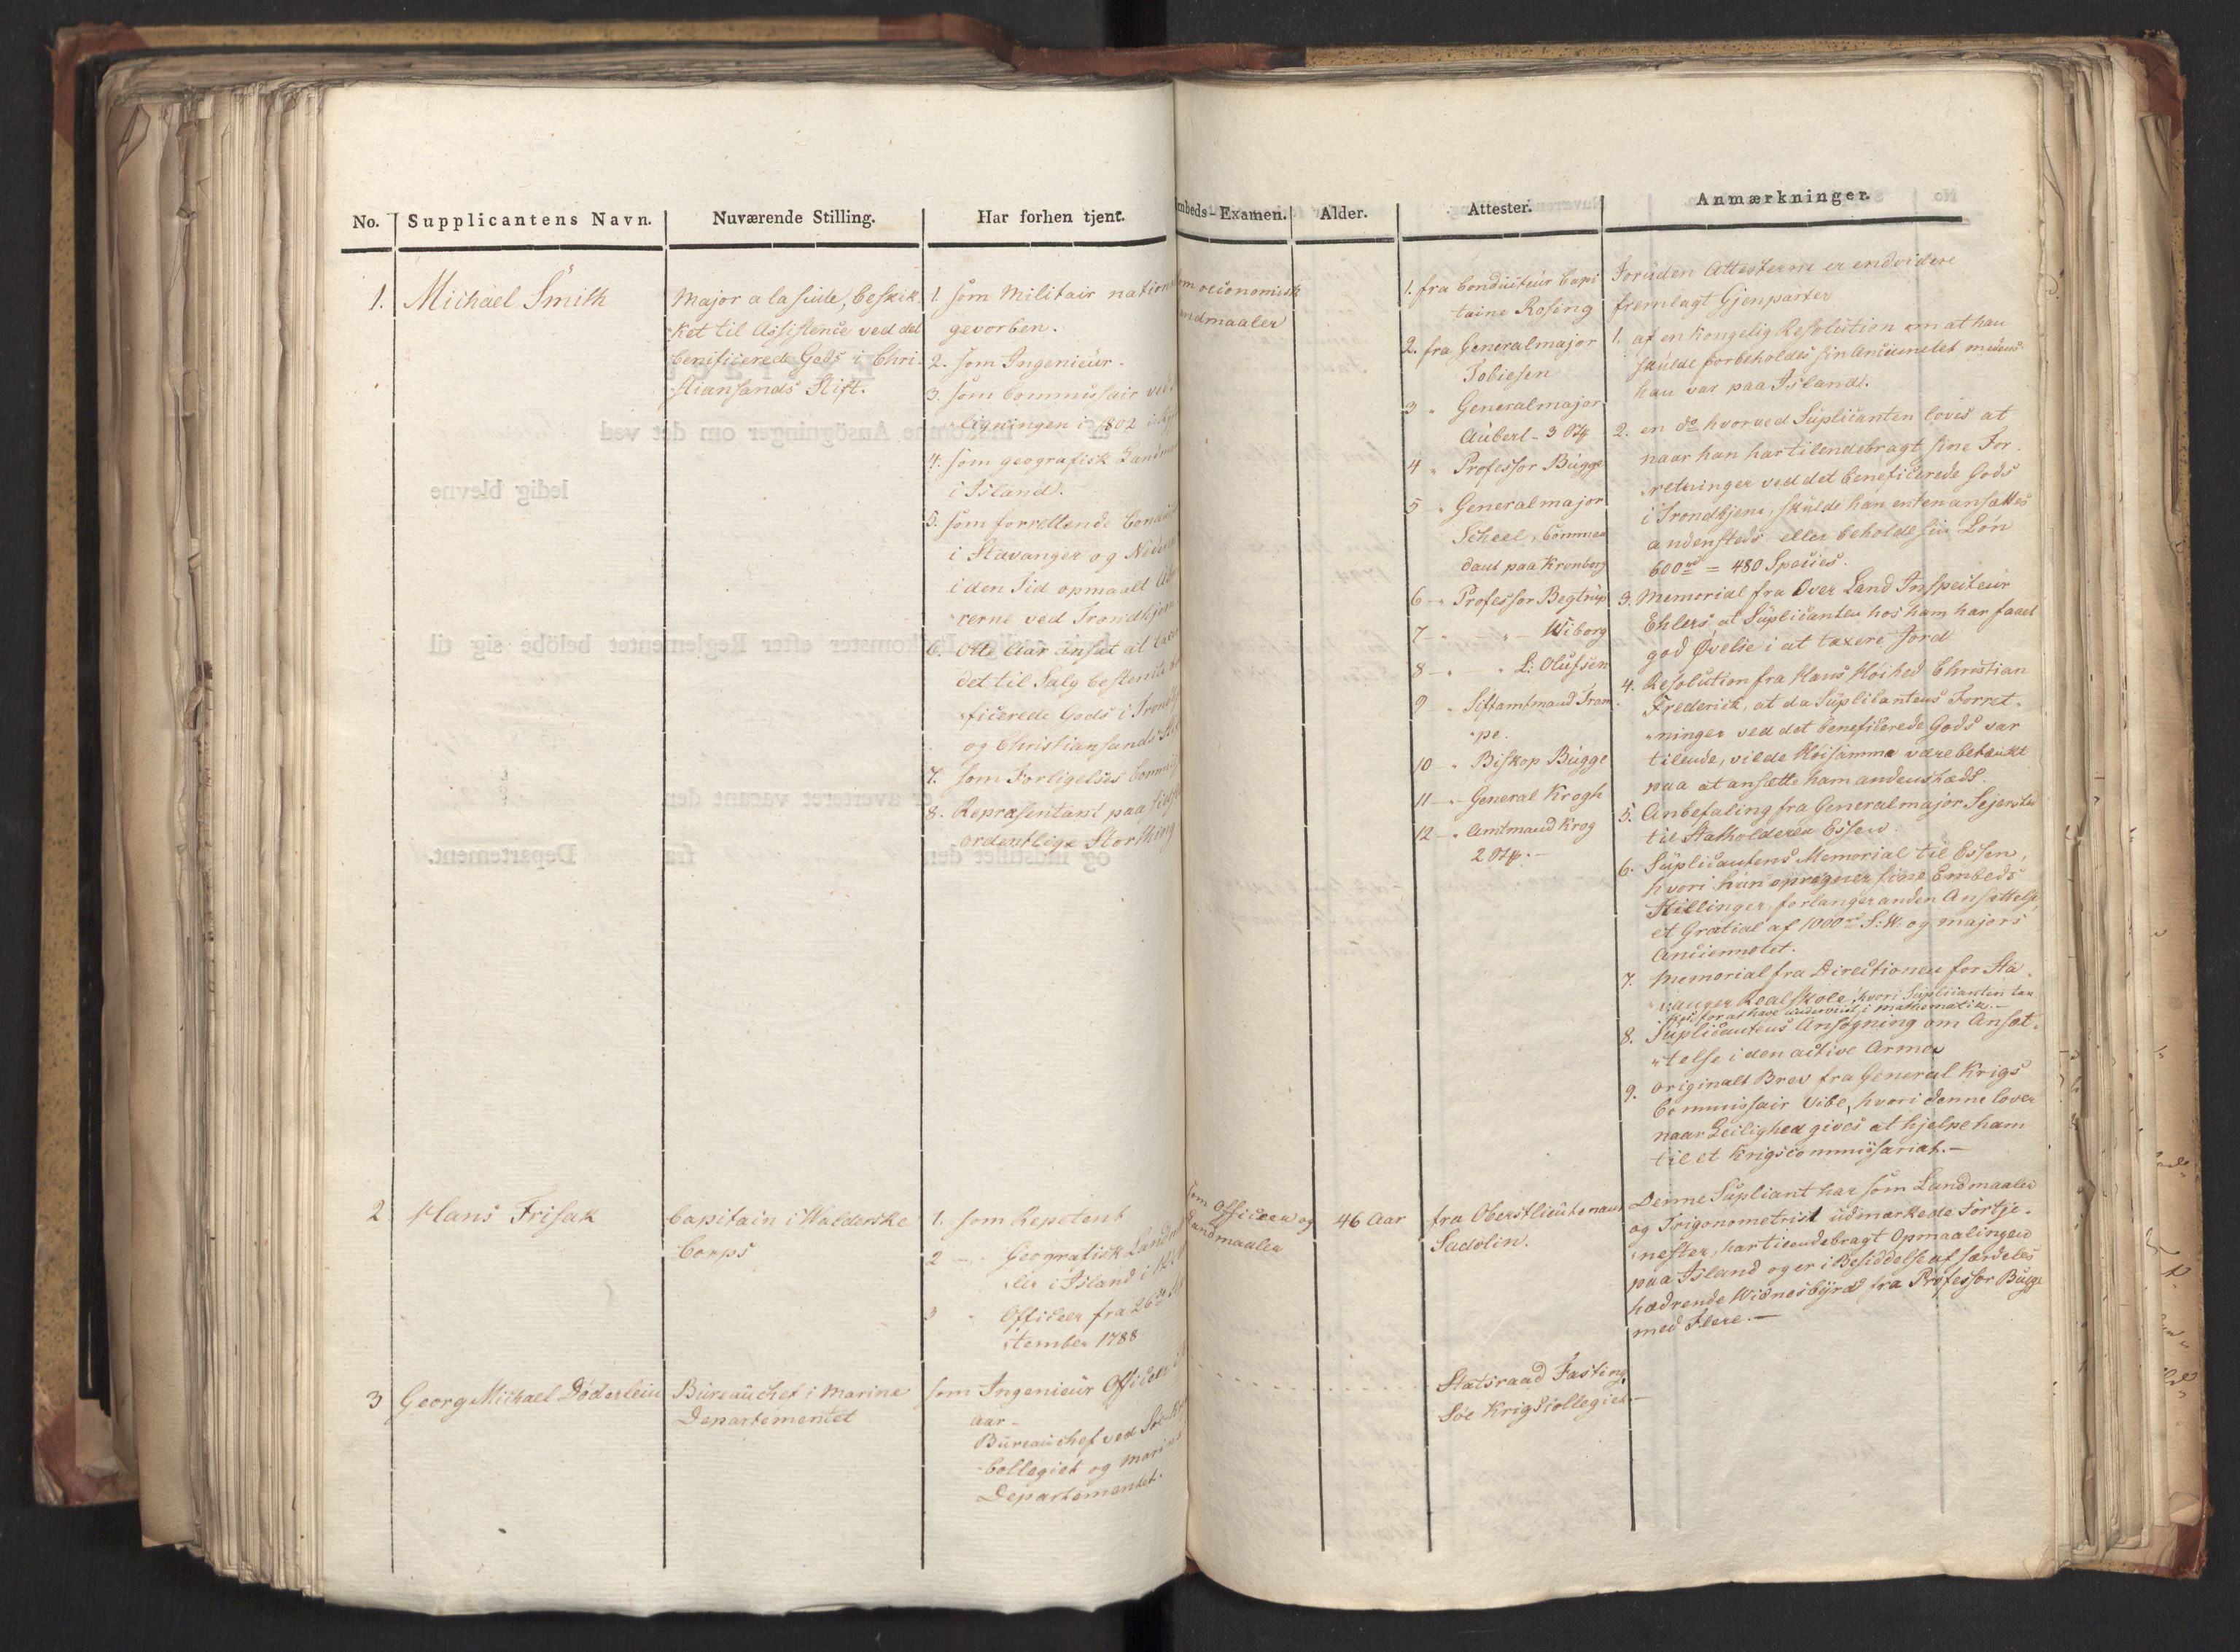 No. Supplicantens Navn. Nuværende Stilling. Har forhen tjent.
1. Michael Smith
Major a la suite, beskik
ket til Assistence ved det
benificerede Gods i Chri
stiansands Stift.
1. som Militair nation
gevorben.
2. som Ingenieur.
3. som Commissair ved
Ligningen i 1802 i
4. som geografisk Landm
i Island.
5. som forrettende Conduct
i Stavanger og
i den Tid opmaalt
rerne ved Trondhjem
6. Otte Aar ansat at taxe
det til Salg bestemte
ficerede Gods i Trond
og Christiansands Sti
7. som Forligelses Commis
8. Repræsentant paa sidste
ordentlige Storthing
2 Hans Frisak
Capitain i Walderske
Corps
1. som Repetent
2 — Geografisk Landm
ler i Island i 12
3 " Officeer fra 26de Se
ptember 1788
3 Georg Michael Döderlein
Büreauchef i Marine
Departementet
som Ingenieur Officeer i
Aar -
Büreauchef ved Söe
Collegiet og Marine
Departementet.
mbeds-Examen. Alder. Attester. Anmærkninger.
som oeconomisk
andmaaler
1. fra Conducteur Capi
taine Rosing
2. fra Generalmajor
Tobiesen
3 " Generalmajor
Aubert - 3 Stk
4 " Professor Bugge
5 " Generalmajor
Scheel, Commen
dant paa Kronborg
6 — " Professor Begtrup
7 — " — " Wiborg
8 — " " L: Olufsen
9 " Stiftamtmand Tram
pe.
10 — " Biskop Bugge
11 — " General Krogh
12 — " Amtmand Krog
2 Stk. —
Foruden Attesterne er endvidere
fremlagt Gjenparter
1. af en Kongelig Resolution om at han
skulde forbeholdes sin Anciennetet medens
han var paa Island.
2. en do hvorved Supplicanten loves at
naar han har tilendebragt sine For
retninger ved det beneficerede Gods
i Trondhjem, skulde han enten ansattes
andensteds eller beholde sin Lön
600 rd = 480 Species.
3. Memorial fra Over Land Inspecteur
Ehlers at Suplicanten hos ham har faaet
god Øvelse i at taxere Jord
4. Resolution fra Hans Höihed Christian
Frederick, at da Suplicantens Forret
ninger ved det beneficerede Gods var
tilende, vilde Höisamme være betænkt
paa at ansætte ham andenstæds.
5. Anbefaling fra Generalmajor Sejersted
til Statholderen Essen.
6. Suplicantens Memorial til Essen,
hvori han opregner sine Embeds
Stillinger, forlanger anden Ansættelse,
et Gratial af 1000 rd S: W. og Majors
Anciennetet.
7. Memorial fra Directionen for Sta
vanger Realskole, hvori Suplicanten tak
kes for at have underviist i Mathematik. —
8. Suplicantens Ansögning om Ansæt
telse i den active Armee
9. Originalt Brev fra General Krigs
Commissair Vibe, hvori denne lover
naar Leilighed gives at hjelpe ham
til et Krigscommissariat. —
som Officeer og
Landmaaler
46 Aar
fra Oberstlieutenant
Sadolin.
Denne Supliant har som Landmaaler
og Trigonometrist udmærkede Fortje
nester, har tilendebragt Opmaalingen
paa Island og er i Besiddelse af særdeles
hædrende Widnesbyrd fra Professor Bugge
med Flere. —
Statsraad Fasting,
Söe Krigscollegiet. —